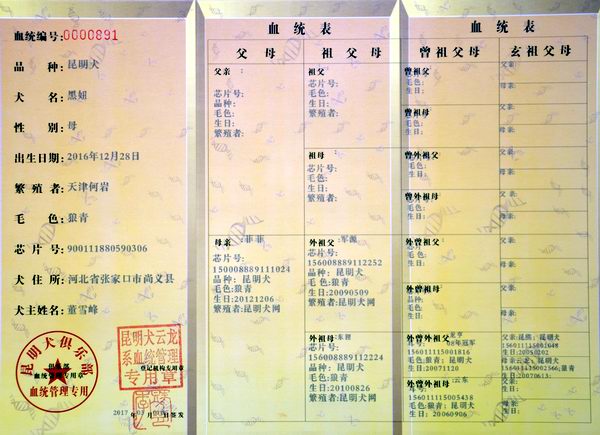 血统编号:0000891
品 种:昆明犬
犬 名:黑妞
性 别:母
出生日期:2016年12月28日
繁殖者:天津何岩
毛 色:狼青
芯片号:900111880590306
犬住所:河北省张家口市尚义县
犬主姓名:董雪峰
昆明犬俱乐部
血统管理专用
昆明犬云龙
系血统管理
专用章
登记机构专用章
2017 年 月 日签发
血统表
父母
祖父母
父亲:
芯片号:
品种:
毛色:
生日:
繁殖者:
祖父:
芯片号:
品种:
毛色:
生日:
繁殖者:
祖母:
芯片号:
毛色:
生日:
繁殖者:
母亲:菲菲
芯片号:
150008889111024
品种:昆明犬
毛色:狼青
生日:20121206
繁殖者:昆明犬网
外祖父:军源
芯片号:
156008889112252
品种:昆明犬
毛色:狼青
生日:20090509
繁殖者:昆明犬网
外祖母:东狸
芯片号:
156008889112224
品种:昆明犬
毛色:狼青
生日:20100826
繁殖者:昆明犬网
血统表
曾祖父母
玄祖父母
曾祖父:
毛色:
生日:
曾祖母:
毛色:
生日:
曾外祖父:
毛色:
生日:
曾外祖母:
毛色:
生日:
外曾祖父:
毛色:
生日:
外曾祖母:
品种:
毛色:
生日:
外曾外祖父:龙亨
芯片号:08年冠军
156011115001816
毛色:狼青;昆明犬
生日:20071120
外曾外祖母:云东
芯片号:
156011115005438
毛色:狼青;昆明犬
生日:20060906
父亲:
母亲:
父亲:
母亲:
父亲:
母亲:
父亲:
母亲:
父亲:
母亲:
父亲:
母亲:
父亲:昆熊;昆明犬
156011115001648
生日:20050202
母亲:云龙;昆明犬
生日:20070613
父亲:
毛色:
生日:
母亲:
毛色:
生日: